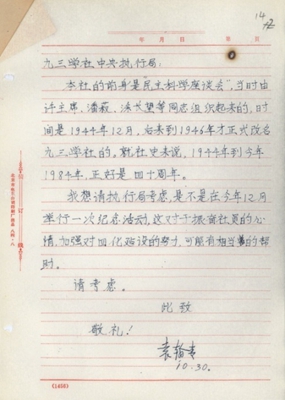 14
年 月 日 第 页
九三学社中央执行局:
本社的前身是“民主科学座谈会”,当时由
许主席、潘菽、涂长望等同志组织起来的,时
间是1944年12月,后来到1946年才正式改名
九三学社的,就社史来说,1944年到今年
1984年,正好是四十周年。
我想请执行局考虑,是不是在今年12月
举行一次纪念活动,这对于振奋社员的心
情,加强对四化建设的努力,可能有相当的帮
助。
请考虑。
此致
敬礼!
袁翰青
10.30.
(1456)